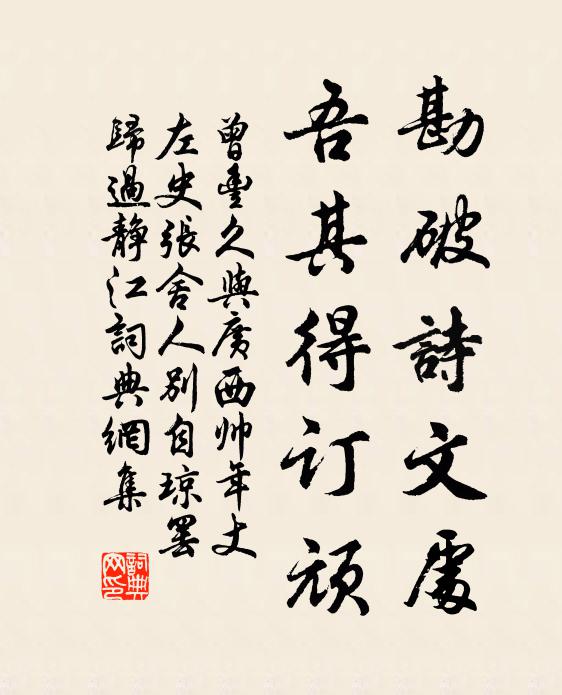 勘破詩文處
吾其得订頑
曾豐久與廣西帅年丈
左史張舍人別自琼罢
歸過静江詞典網集
詞典网印